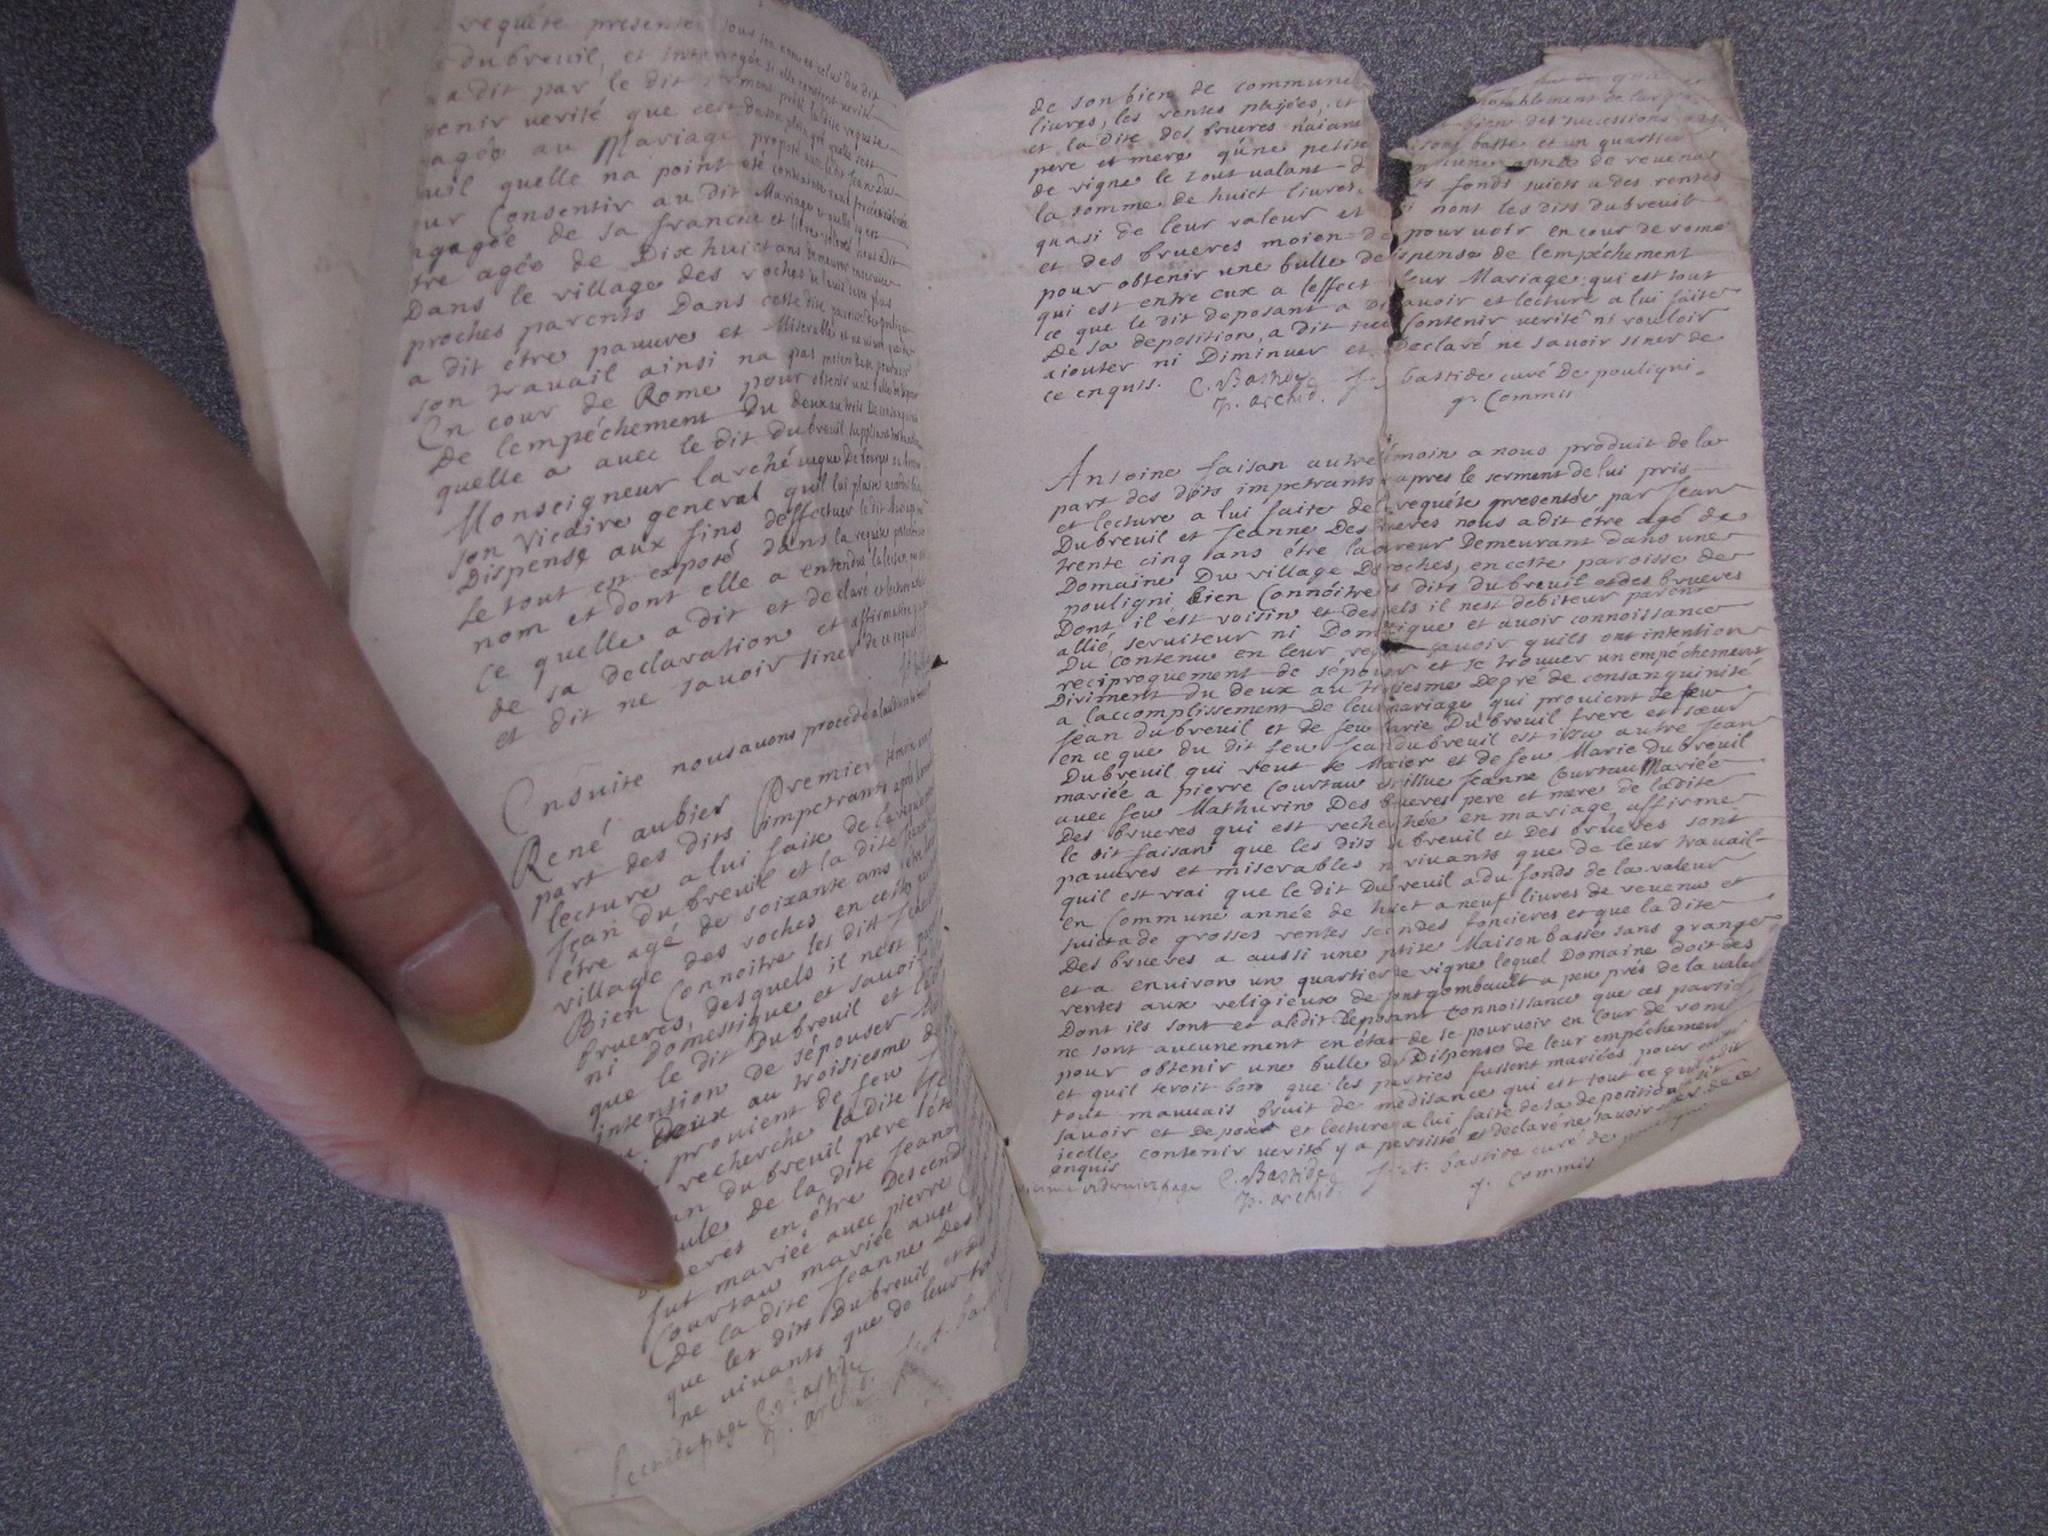 requête presentée sous son nom et celui du dit
dubreuil, et interrogée si elle contient verité
a dit par le dit serment presté la dite requeste
tenir verité que cest de son plein gré quelle sest
agée au Mariage proposé avec le dit Jean Du
uil quelle na point été contrainte
ur Consentir au dit Mariage quelle y est
ngagée de sa franche et libre volonté nous dit
tre agée de Dixhuict ans demeurer
Dans le village des roches
proches parents Dans cette dite paroisse de pouligni
a dit être pauure et Miserable et ne vivre que de
son travail ainsi na pas moien de se pouruoir
En cour de Rome pour obtenir une bulle de dispense
De lempéchement Du deux au trois De consanguinité
quelle a avec le dit dubreuil suppliant
Monseigneur larchéuéque De bourges ou
son Vicaire general quil lui plaise accorder
Dispense aux fins deffectuer le dit Mariage
le tout est exposé dans la requête présentée
nom et dont elle a entendu la lecture
ce quelle a dit et declaré et lecture
de sa declaration et affirmation
et dit ne sauoir siner de ce enquis
Ensuite nous auons procédé a laudition
René aubier Premier témoin
part des dits impetrants après
lecture a lui faite de la requeste
Jean du breuil et la dite Jeanne
être agé de soixante ans être
village des roches en cette
Bien Connoitre les dits
brueres, desquels il nest
ni domestique et sauoir
que le dit Dubreuil et la
intension de sépouser
Deux au troisiesme de
prouient de feu
recherche la dite
an dubreuil pere
De la dite Jeanne
eres en être Descend
fut mariée avec pierre
Courtau mariée avec
De la dite Jeanne Des
que les dits Dubreuil et des
ne viuants que de leur tra
page C. Bastide
p. archid.
de son bien de commune
livres, les rentes paiées, et
et la dite des brueres naiant
pere et mere qune petite
de vigne le tout ualant
la somme de huict livres,
quasi de leur valeur et
et des brueres moien de pouruoir en cour de rome
pour obtenir une bulle de dispense de lempéchement
qui est entre eux a leffect leur Mariage qui est tout
ce que le dit deposant a dit sauoir et lecture a lui faite
De sa deposition, a dit icelle Contenir verité ni vouloir
aiouter ni Diminuer et Declaré ne sauoir siner de
ce enquis. C. Bastide bastide curé de pouligni
p. archid. Commis
notablement de largent
bien des successions
son basse et un quartier
une année de revenu
fonds suiets a des rentes
nont les dits dubreuil
Antoine faisan autre témoin a nous produit de la
part des dits impetrants apres le serment de lui pris
et lecture a lui faite de la requéte presentée par Jean
Dubreuil et Jeanne Des brueres nous a dit étre agé de
trente cinq ans étre laboureur Demeurant dans une
Domaine Du village Des roches, en cette paroisse de
pouligni bien Connoitre les dits dubreuil et des brueres
Dont il est voisin et desquels il nest debiteur parent
allié, seruiteur ni Domestique et auoir connoissance
Du contenu en leur requête sauoir quils ont intention
reciproquement de sépouser et se trouuer un empéchement
Diriment du deux au troisiesme Degré de consanguinité
a laccomplissement de leur mariage qui prouient de feu
Jean dubreuil et de feu Marie Dubreuil frere et sœur
en ce que du dit feu Jean dubreuil est issu autre Jean
Dubreuil qui veut se Maier et de feu Marie dubreuil
mariée a pierre Courtau est issue Jeanne Courtau Mariée
avec feu Mathurin Des brueres pere et mere de ladite
Des brueres qui est recherchée en mariage, affirme
le dit faisan que les dits dubreuil et Des brueres sont
pauures et miserables ne viuants que de leur trauail
quil est vrai que le dit Dubreuil a du fonds de la valeur
en Commune année de huict a neuf livres de reuenu et
suiet a de grosses rentes secondes foncieres et que la dite
Des brueres a aussi une ptite Maison basse sans grange
et a enuiron un quartier de vigne lequel Domaine doit des
rentes aux religieux de fontgombault a peu prés de la valeur
Dont ils sont et a le dit Deposant Connoissance que ces parties
ne sont aucunement en état de se pouruoir en Cour de rome
pour obtenir une bulle de Dispense de leur empéchement
et quil seroit bon que les parties fussent mariées pour
tout mauuais bruit de medisance qui est tout ce quil a dit
sauoir et deposer et lecture a lui faite de sa deposition a dit
icelle contenir verité y a persisté et declaré ne sauoir siner de ce
enquis
derniere page C. Bastide J. et. bastide curé de pouligni
p. archid. Commis